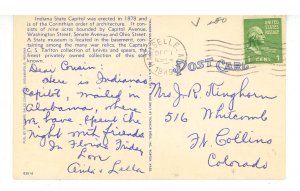 Indiana State Capitol was erected in 1878 and
is of the Corinthian type of architecture. It con-
sists of nine acres bounded by Capitol Avenue,
Washington Street, Senate Avenue and Ohio Street.
A State museum is located in the basement, con-
taining among the many war relics, the Captain
G. S. Tarlton collection of knives and spears, the
finest private owned collection of this kind.
Dear Cousin:
Here is Indiana's
Capitol, mailed in
Alabama, where we
have spent the
night with friends
In Florida Friday
Love
Anti & Lella
POST CARD
1949
1 CENT 1
Mrs J. R. Kinghorn
516 Whitcomb
Ft. Collins
Colorado